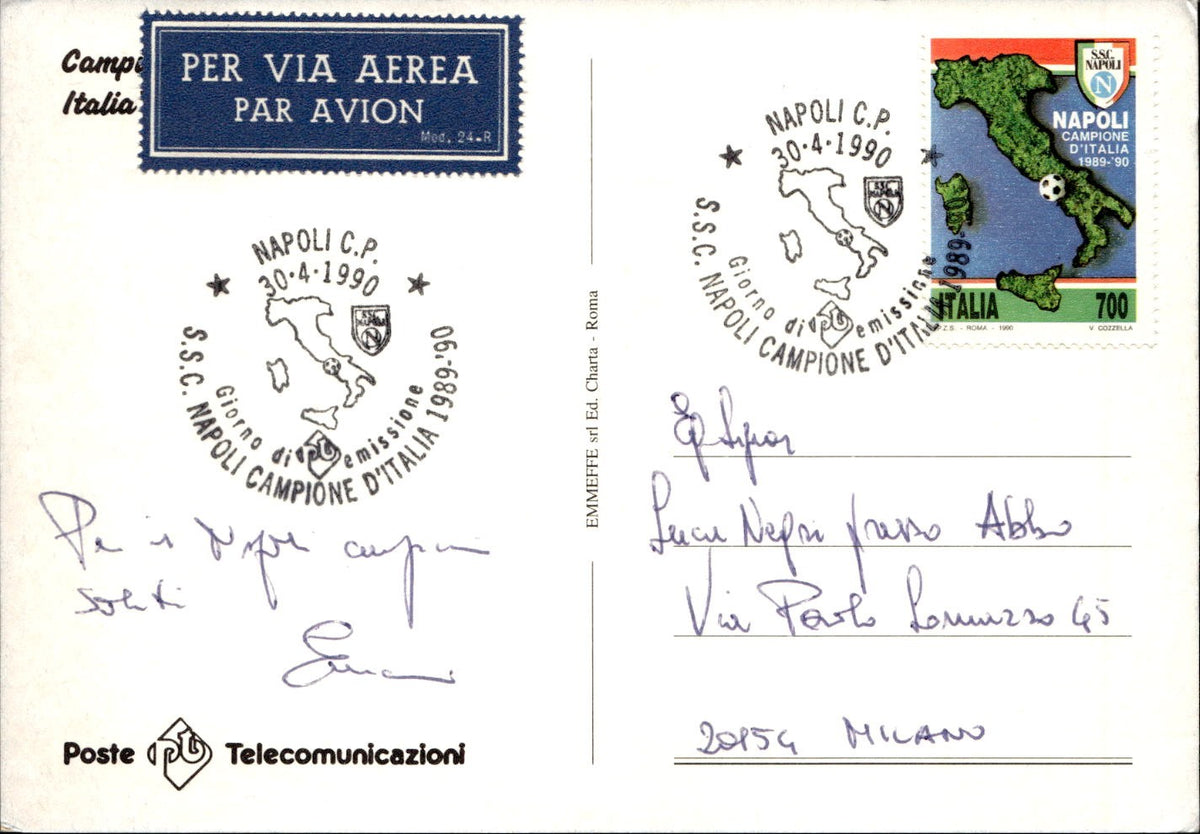 Campi
Italia
PER VIA AEREA
PAR AVION
Mod. 24-R
NAPOLI C.P.
30·4·1990
SSC NAPOLI
N
Giorno di emissione
S.S.C. NAPOLI CAMPIONE D'ITALIA 1989-'90
Napoli
soliti
Poste Telecomunicazioni
EMMEFFE srl Ed. Charta - Roma
NAPOLI C.P.
30·4·1990
SSC NAPOLI
N
Giorno di emissione
S.S.C. NAPOLI CAMPIONE D'ITALIA 1989-'90
S.S.C.
NAPOLI
N
NAPOLI
CAMPIONE
D'ITALIA
1989-'90
ITALIA 700
I.P.Z.S. - ROMA - 1990 V. COZZELLA
Eg Signor
Luca Negri presso Abbo
Via Paolo Lomazzo 45
20154 MILANO